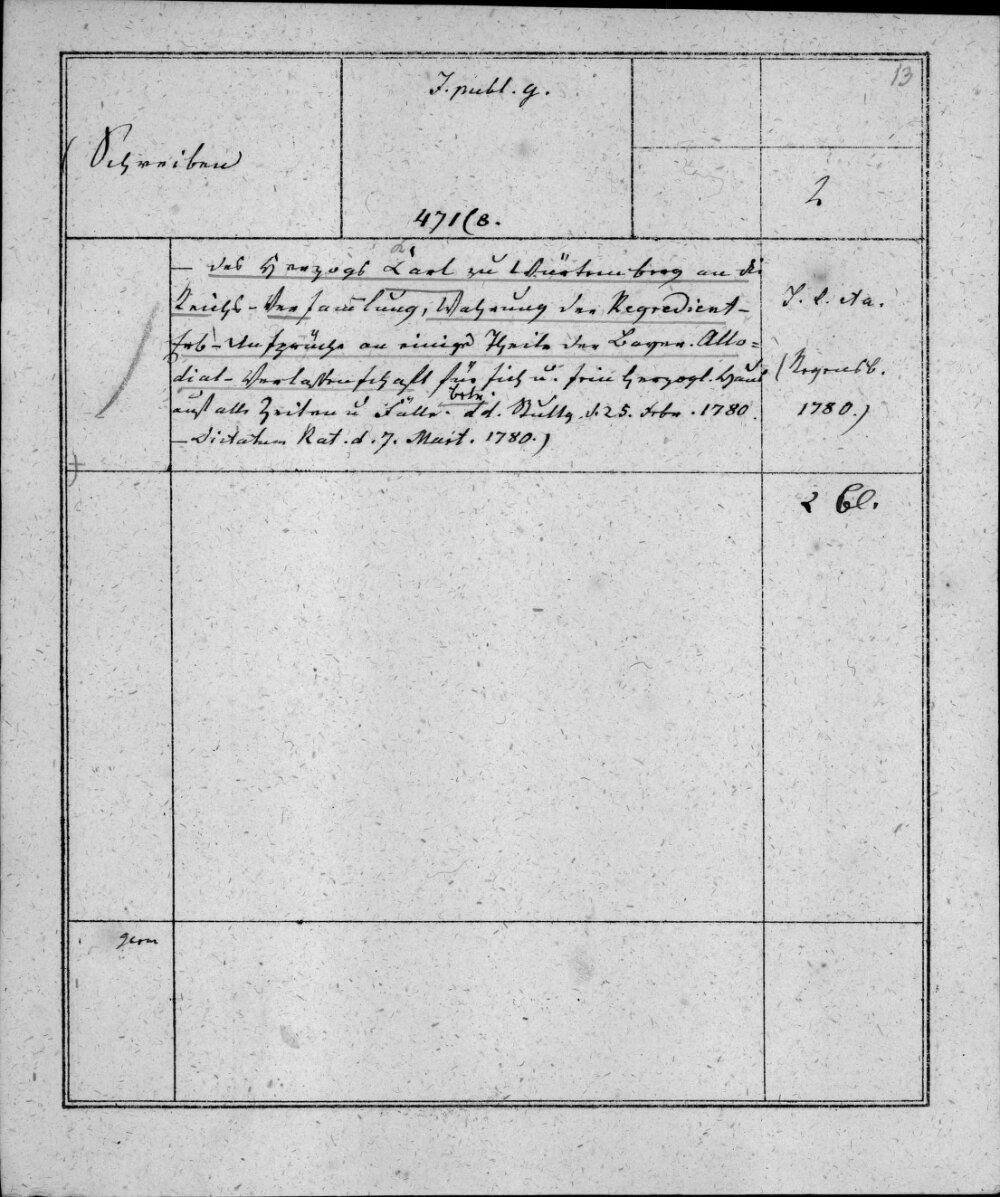 J. publ. g.
13
(Schreiben
2
471(8.
— des Herzogs Carl zu Würtemberg an die
Reichs-Versamlung, Wahrung der Regredient-
Erb-Ansprüche an einige Theile der Bayer. Allo=
dial-Verlassenschaft für sich u. sein Herzogl. Haus
auf alle Zeiten u Fälle betr. dd. Stuttg. d. 25. Febr. 1780.
— Dictatum Rat. d. 7. Mart. 1780.)
S. l. et a.
(Regensb.
1780.)
2 Bl.
germ